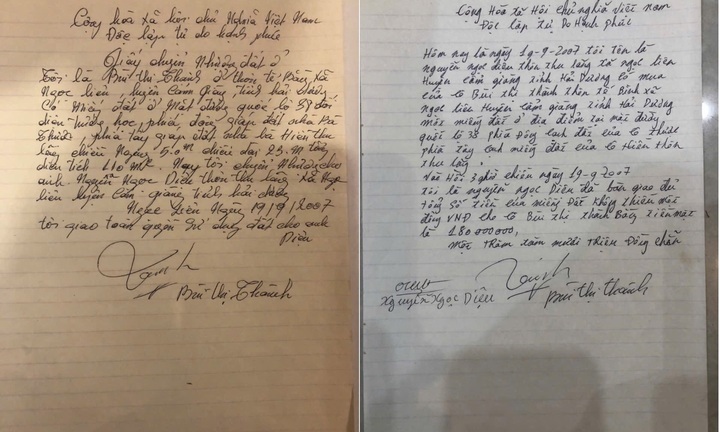 Cộng hòa xã hội chủ Nghĩa Việt Nam
Độc lập tự do hạnh phúc
Giấy chuyển Nhường đất ở
Tôi là Bùi Thị Thành ở thôn tế Bình xã
Ngọc liên, huyện Cẩm Giàng, tỉnh hải dương
Có miếng đất ở mặt đường quốc lộ 38 đối
diện trường học, phía đông giáp đất nhà bà
Thước, phía tây giáp đất nhà bà Hiên thu
lãng chiều Ngang 5.0m chiều dài 23.m tổng
diện tích 110 M². Nay tôi chuyển Nhường cho
anh. Nguyễn Ngọc Diệu thôn thu lãng xã Ngọc
liên huyện Cẩm giàng tỉnh hải dương
Ngọc Liên Ngày 19/9/2007
tôi giao toàn quyền sử dụng đất cho anh
Diệu
Thành
Bùi Thị Thành
Cộng Hòa xã Hội chủ nghĩa việt nam
Độc lập tự Do Hạnh phúc
Hôm nay là ngày 19-9-2007 tôi tên là
nguyễn ngọc diệu thôn thu lãng xã ngọc liên
Huyện cẩm giàng tỉnh Hải Dương có mua
của cô Bùi thị thành thôn tế Bình xã
ngọc liên Huyện cẩm giàng tỉnh Hải Dương
một miếng đất ở địa điểm tại mặt đường
quốc lộ 38 phía Đông cạnh đất của cô thước
phía tây cạnh miếng đất của cô Hiên thôn
thu lãng,
vào Hồi 3 giờ chiều ngày 19-9-2007
tôi là nguyễn ngọc Diệu đã bàn giao đủ
tổng số tiền của miếng Đất không thiếu một
đồng VNĐ cho cô Bùi thị thành Bằng tiền mặt
là 180.000000,
một trăm tám mươi triệu Đồng chẵn
Thành
Nguyễn Ngọc Diệu
Bùi thị thành